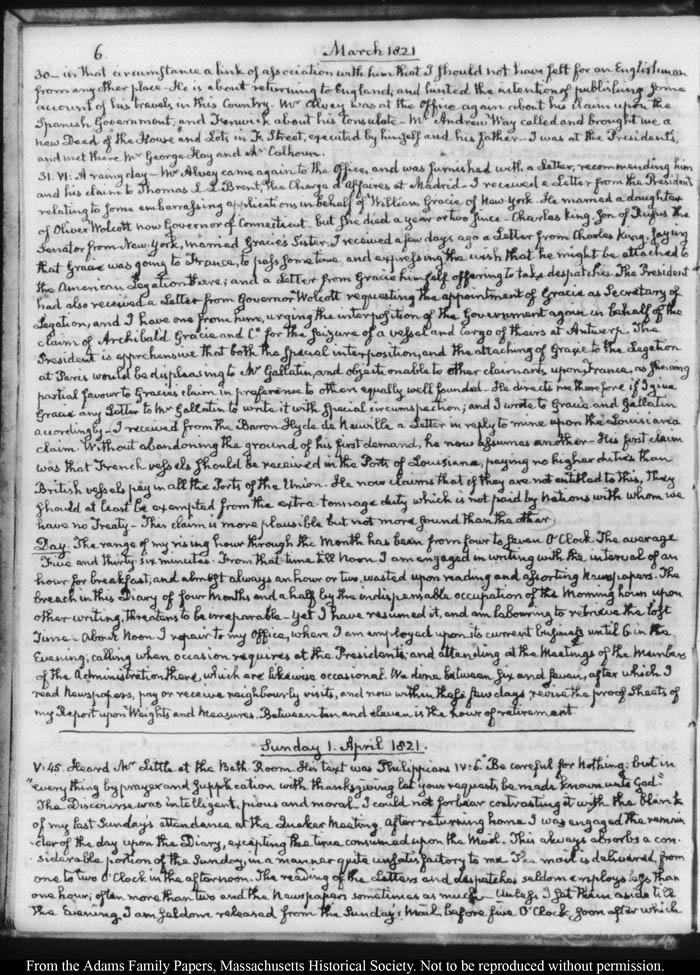 6
March 1821
30— is that circumstance a link of association with him that I should not have felt for an Englishman
from any other place— He is about returning to England, and hinted the intention of publishing some
account of his travels in this Country. Mr Alvey was at the Office again about his claim upon the
Spanish Government, and Fenwick about his Consulate— Mr Andrew Way called and brought me a
new Deed of the House and Lots in F. Street, executed by himself and his father— I was at the President's,
and met there Mr George Hay and Mr Calhoun.
31. VI: A rainy day— Mr Alvey came again to the Office, and was furnished with a Letter, recommending him
and his claim to Thomas L. L. Brent, the Chargé d'Affaires at Madrid— I received a Letter from the President
relating to some embarrassing applications in behalf of William Gracie of New York. He married a daughter
of Oliver Wolcott now Governor of Connecticut, but she died a year or two since— Charles King, Son of Rufus the
Senator from New-York, married Gracie's Sister. I received a few days ago a Letter from Charles King, saying
that Gracie was going to France, to pass some time, and expressing the wish that he might be attached to
the American Legation there; and a Letter from Gracie himself offering to take despatches. The President
had also received a Letter from Governor Wolcott requesting the appointment of Gracie as Secretary of
Legation, and I have one from him, urging the interposition of the Government again in behalf of the
claim of Archibald Gracie and Co. for the seizure of a vessel and cargo of theirs at Antwerp. The
President is apprehensive that both the special interposition, and the attaching of Gracie to the Legation
at Paris would be displeasing to Mr Gallatin, and objectionable to other claimants, upon France, as showing
partial favour to Gracies claim in preference to others equally well founded— He directs me therefore if I give
Gracie any Letter to Mr Gallatin to write it with special circumspection; and I wrote to Gracie and Gallatin
accordingly— I received from the Baron Hyde de Neuville a Letter in reply to mine upon the Louisiana
claim. Without abandoning the ground of his first demand, he now assumes another— His first claim
was that French vessels should be received in the Ports of Louisiana, paying no higher duties than
British vessels pay in all the Ports of the Union. He now claims that if they are not entitled to this, They
should at least be exempted from the extra tonnage duty which is not paid by Nations with whom we
have no Treaty— This claim is more plausible but not more sound than the other
Day. The range of my rising hour through the Month has been from four to seven O'Clock. The average
Five and thirty-six minutes. From that time till Noon I am engaged in writing with the interval of an
hour for breakfast, and almost always an hour or two, wasted upon reading and assorting Newspapers. The
breach in this Diary of four Months and a half by the indispensable occupation of the Morning hours upon
other writing, threatens to be irreparable— Yet I have resumed it, and am labouring to retrieve the lost
Time— About Noon I repair to my Office, where I am employed upon its current business until 6 in the
Evening; calling when occasion requires at the Presidents; and attending at the Meetings of the Members
of the Administration there, which are likewise occasional. We dine between six and seven, after which I
read Newspapers, pay or receive neighbourly visits, and now within these few days revise the proof sheets of
my Report upon Weights and Measures. Between ten and eleven is the hour of retirement.
Sunday 1. April 1821.
V:45. Heard Mr Little at the Bath. Room. His text was Philippians IV:6 "Be careful for Nothing; but in
"every thing by prayer and supplication with thanksgiving let your requests be made known unto God."
The Discourse was intelligent, pious and moral— I could not forbear contrasting it with the blank
of my last Sunday's attendance at the Quaker Meeting. After returning home I was engaged the remain
der of the day upon the Diary, excepting the time consumed upon the Mail. This always absorbs a con-
siderable portion of the Sunday, in a manner quite unsatisfactory to me The mail is delivered, from
one to two O'Clock in the afternoon. The reading of the Letters and despatches seldom employs less than
one hour; often more than two and the Newspapers sometimes as much— Unless I set them aside till
the Evening, I am seldom released from the Sunday's Mail before five O'Clock, soon after which
From the Adams Family Papers, Massachusetts Historical Society. Not to be reproduced without permission.